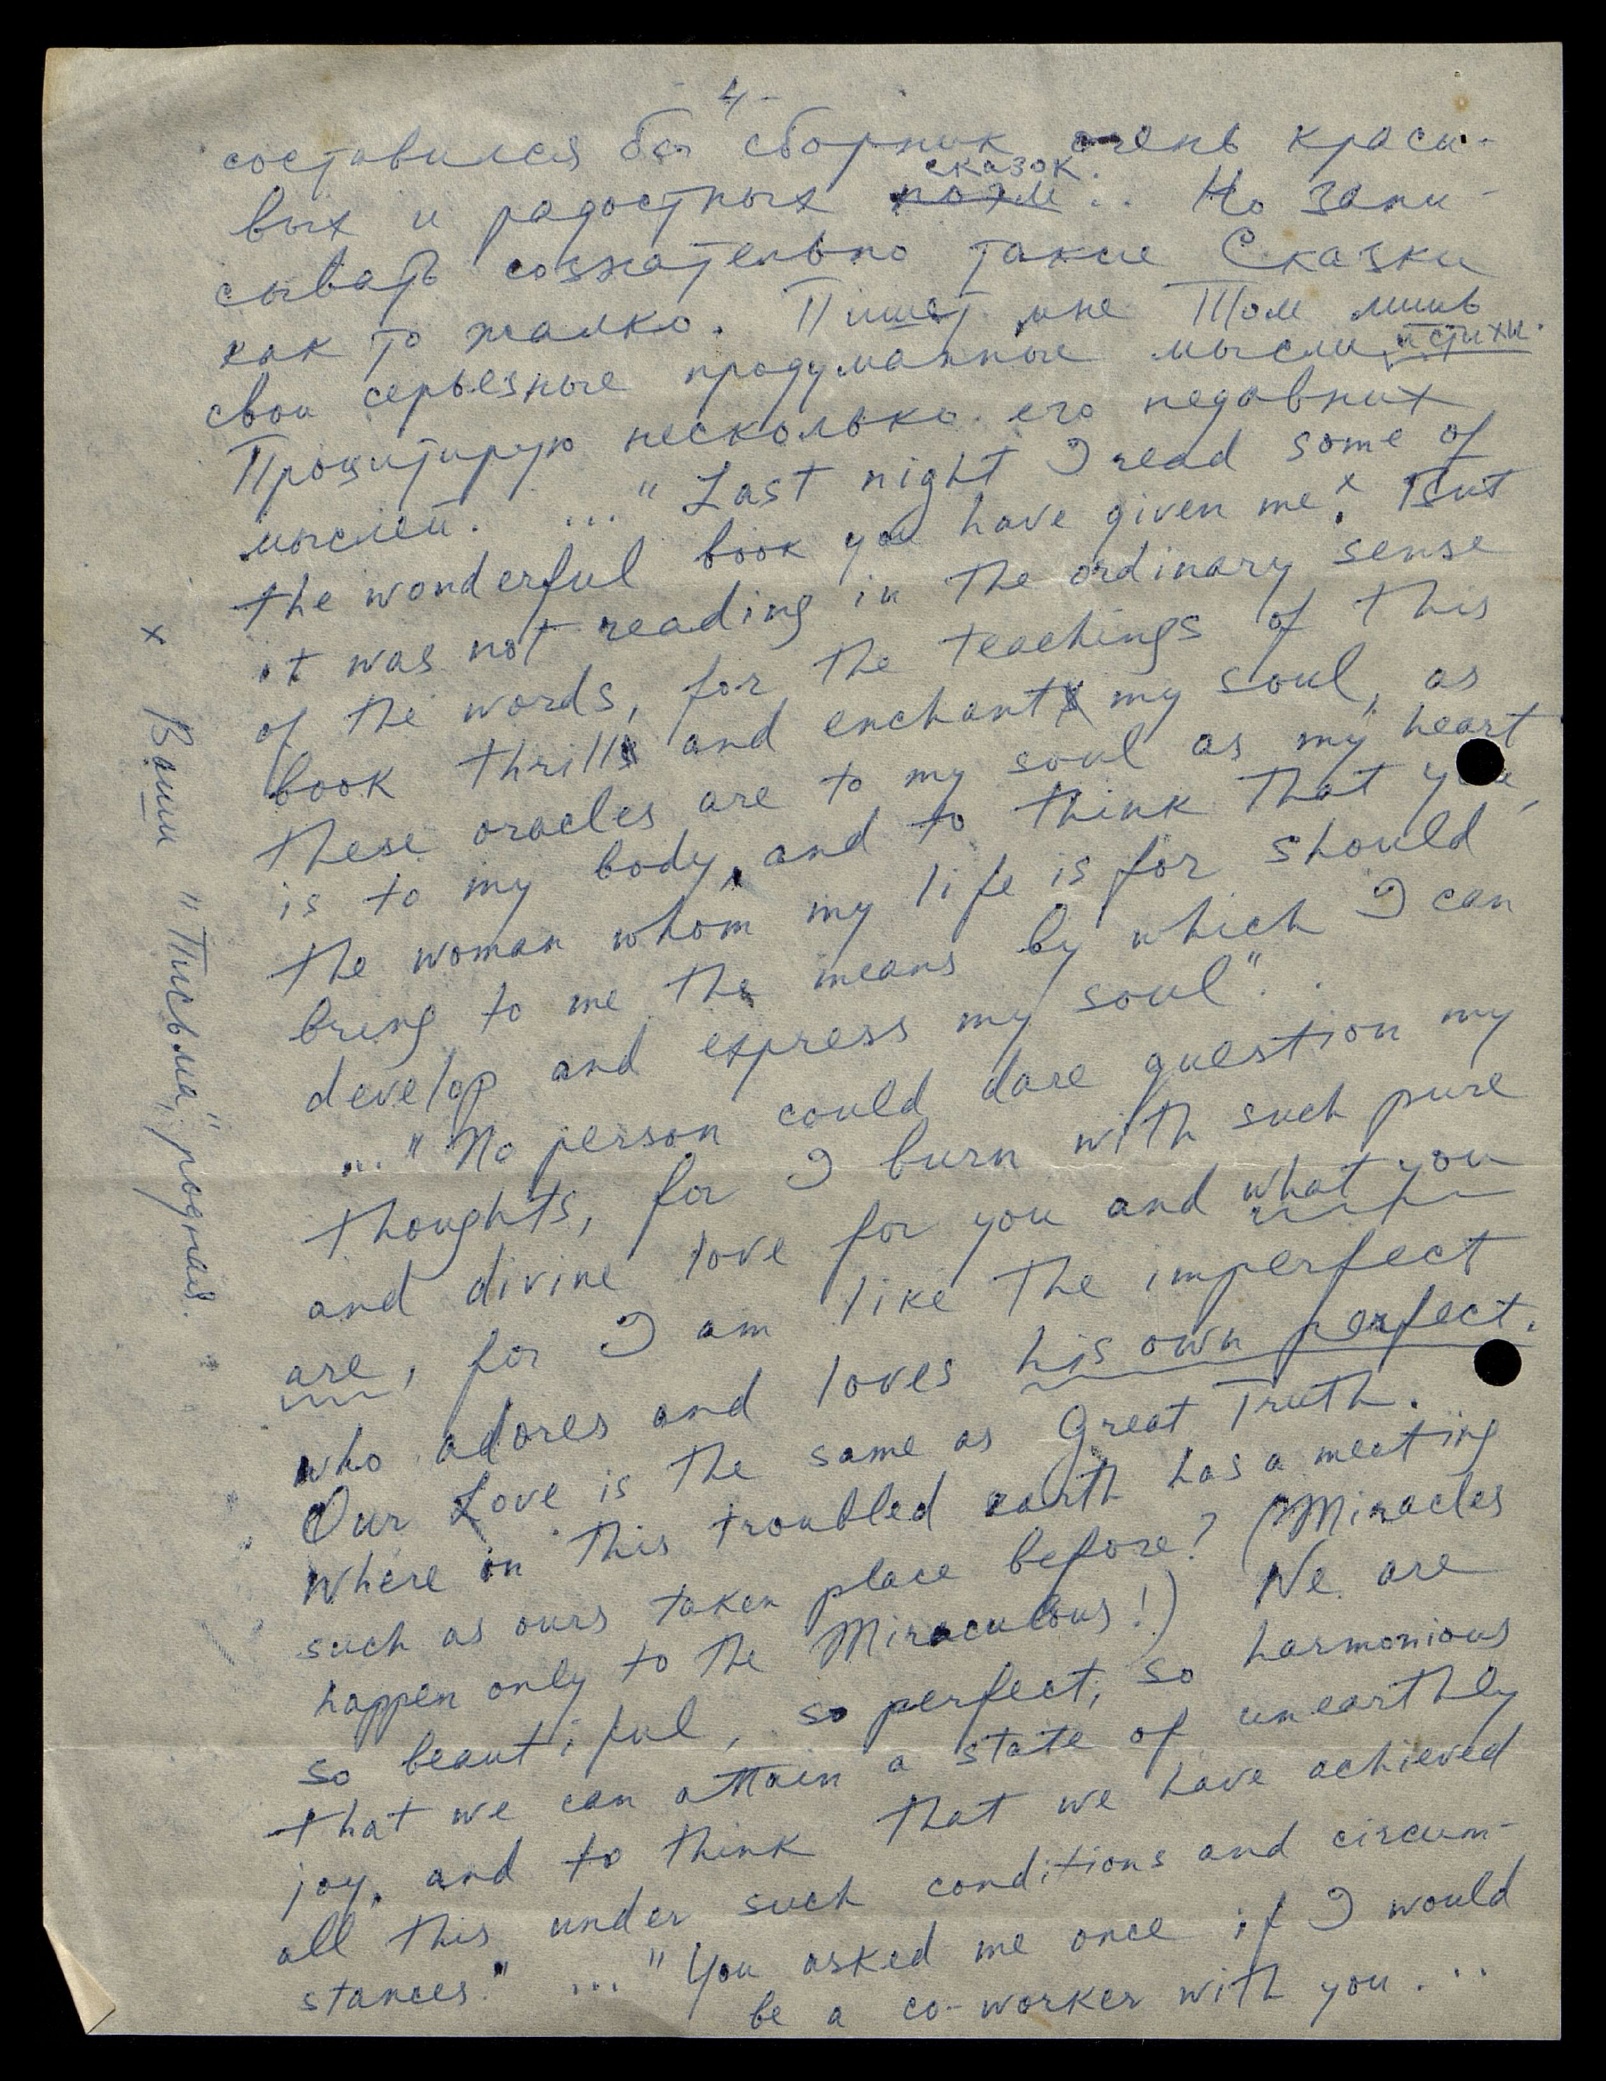 - 4 -
составился бы сборник очень краси-
вых и радостных поэм сказок... Но запи-
сывать сознательно такие Сказки
как то жалко. Пишет мне Том лишь
свои серьезные продуманные мысли и стихи.
Процитирую несколько его недавних
мыслей. ... "Last night I read some of
the wonderful book you have given me.x But
it was not reading in the ordinary sense
of the words, for the teachings of this
book thrill and enchant my soul, as
these oracles are to my soul as my heart
is to my body, and to think that you,
the woman whom my life is for should
bring to me the means by which I can
develop and express my soul"..
... "No person could dare question my
thoughts, for I burn with such pure
and divine love for you and what you
are, for I am like the imperfect
who adores and loves his own perfect.
Our Love is the same as Great Truth.
Where on this troubled earth has a meeting
such as ours taken place before? (Miracles
happen only to the Miraculous!) We are
so beautiful, so perfect, so harmonious
that we can attain a state of unearthly
joy, and to think that we have achieved
all this under such conditions and circum-
stances." ... "You asked me once if I would
be a co-worker with you...
x Ваши "Письма", родная.